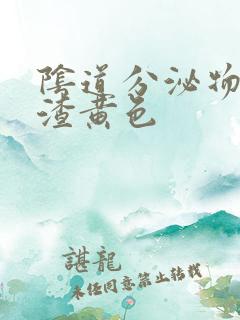 陰道分泌物
渣黄色
諶龍
未经同意禁止转载